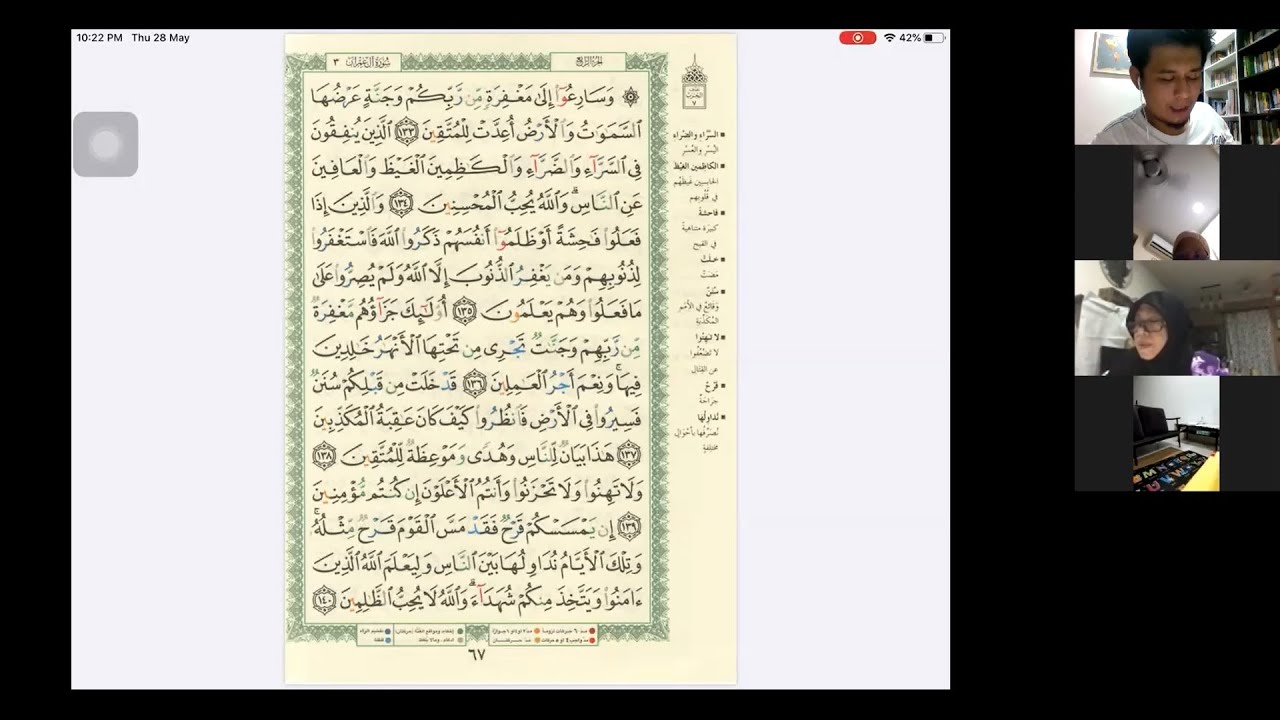 10:22 PM Thu 28 May
42%
سُورَةُ آلِ عِمْرَانَ ٣
الجزء الرابع
۞ وَسَارِعُوٓا۟ إِلَىٰ مَغْفِرَةٍ مِّن رَّبِّكُمْ وَجَنَّةٍ عَرْضُهَا
ٱلسَّمَٰوَٰتُ وَٱلْأَرْضُ أُعِدَّتْ لِلْمُتَّقِينَ ١٣٣ ٱلَّذِينَ يُنفِقُونَ
فِى ٱلسَّرَّآءِ وَٱلضَّرَّآءِ وَٱلْكَٰظِمِينَ ٱلْغَيْظَ وَٱلْعَافِينَ
عَنِ ٱلنَّاسِ ۗ وَٱللَّهُ يُحِبُّ ٱلْمُحْسِنِينَ ١٣٤ وَٱلَّذِينَ إِذَا
فَعَلُوا۟ فَٰحِشَةً أَوْ ظَلَمُوٓا۟ أَنفُسَهُمْ ذَكَرُوا۟ ٱللَّهَ فَٱسْتَغْفَرُوا۟
لِذُنُوبِهِمْ وَمَن يَغْفِرُ ٱلذُّنُوبَ إِلَّا ٱللَّهُ وَلَمْ يُصِرُّوا۟ عَلَىٰ
مَا فَعَلُوا۟ وَهُمْ يَعْلَمُونَ ١٣٥ أُو۟لَٰٓئِكَ جَزَآؤُهُم مَّغْفِرَةٌ
مِّن رَّبِّهِمْ وَجَنَّٰتٌ تَجْرِى مِن تَحْتِهَا ٱلْأَنْهَٰرُ خَٰلِدِينَ
فِيهَا ۚ وَنِعْمَ أَجْرُ ٱلْعَٰمِلِينَ ١٣٦ قَدْ خَلَتْ مِن قَبْلِكُمْ سُنَنٌ
فَسِيرُوا۟ فِى ٱلْأَرْضِ فَٱنظُرُوا۟ كَيْفَ كَانَ عَٰقِبَةُ ٱلْمُكَذِّبِينَ
١٣٧ هَٰذَا بَيَانٌ لِّلنَّاسِ وَهُدًى وَمَوْعِظَةٌ لِّلْمُتَّقِينَ ١٣٨
وَلَا تَهِنُوا۟ وَلَا تَحْزَنُوا۟ وَأَنتُمُ ٱلْأَعْلَوْنَ إِن كُنتُم مُّؤْمِنِينَ
١٣٩ إِن يَمْسَسْكُمْ قَرْحٌ فَقَدْ مَسَّ ٱلْقَوْمَ قَرْحٌ مِّثْلُهُۥ ۚ
وَتِلْكَ ٱلْأَيَّامُ نُدَاوِلُهَا بَيْنَ ٱلنَّاسِ وَلِيَعْلَمَ ٱللَّهُ ٱلَّذِينَ
ءَامَنُوا۟ وَيَتَّخِذَ مِنكُمْ شُهَدَآءَ ۗ وَٱللَّهُ لَا يُحِبُّ ٱلظَّٰلِمِينَ ١٤٠
■ السَّرَّاءِ والضَّرَّاءِ
اليُسْرِ والعُسْرِ
■ الكاظمين الغَيْظَ
الحابسين غيظَهُم
في قُلُوبِهم
■ فاحشةً
كبيرة متناهيةً
في القبح
■ خلتْ
مَضَتْ
■ سُنَنٌ
وَقَائِعُ في الأُمَمِ
المُكَذِّبَةِ
■ لا تَهِنُوا
لا تَضْعُفُوا
عن القِتَالِ
■ قَرْحٌ
جراحةٌ
■ نُداوِلُها
نُصَرِّفُها بأحْوالٍ
مختلفةٍ
٦٧